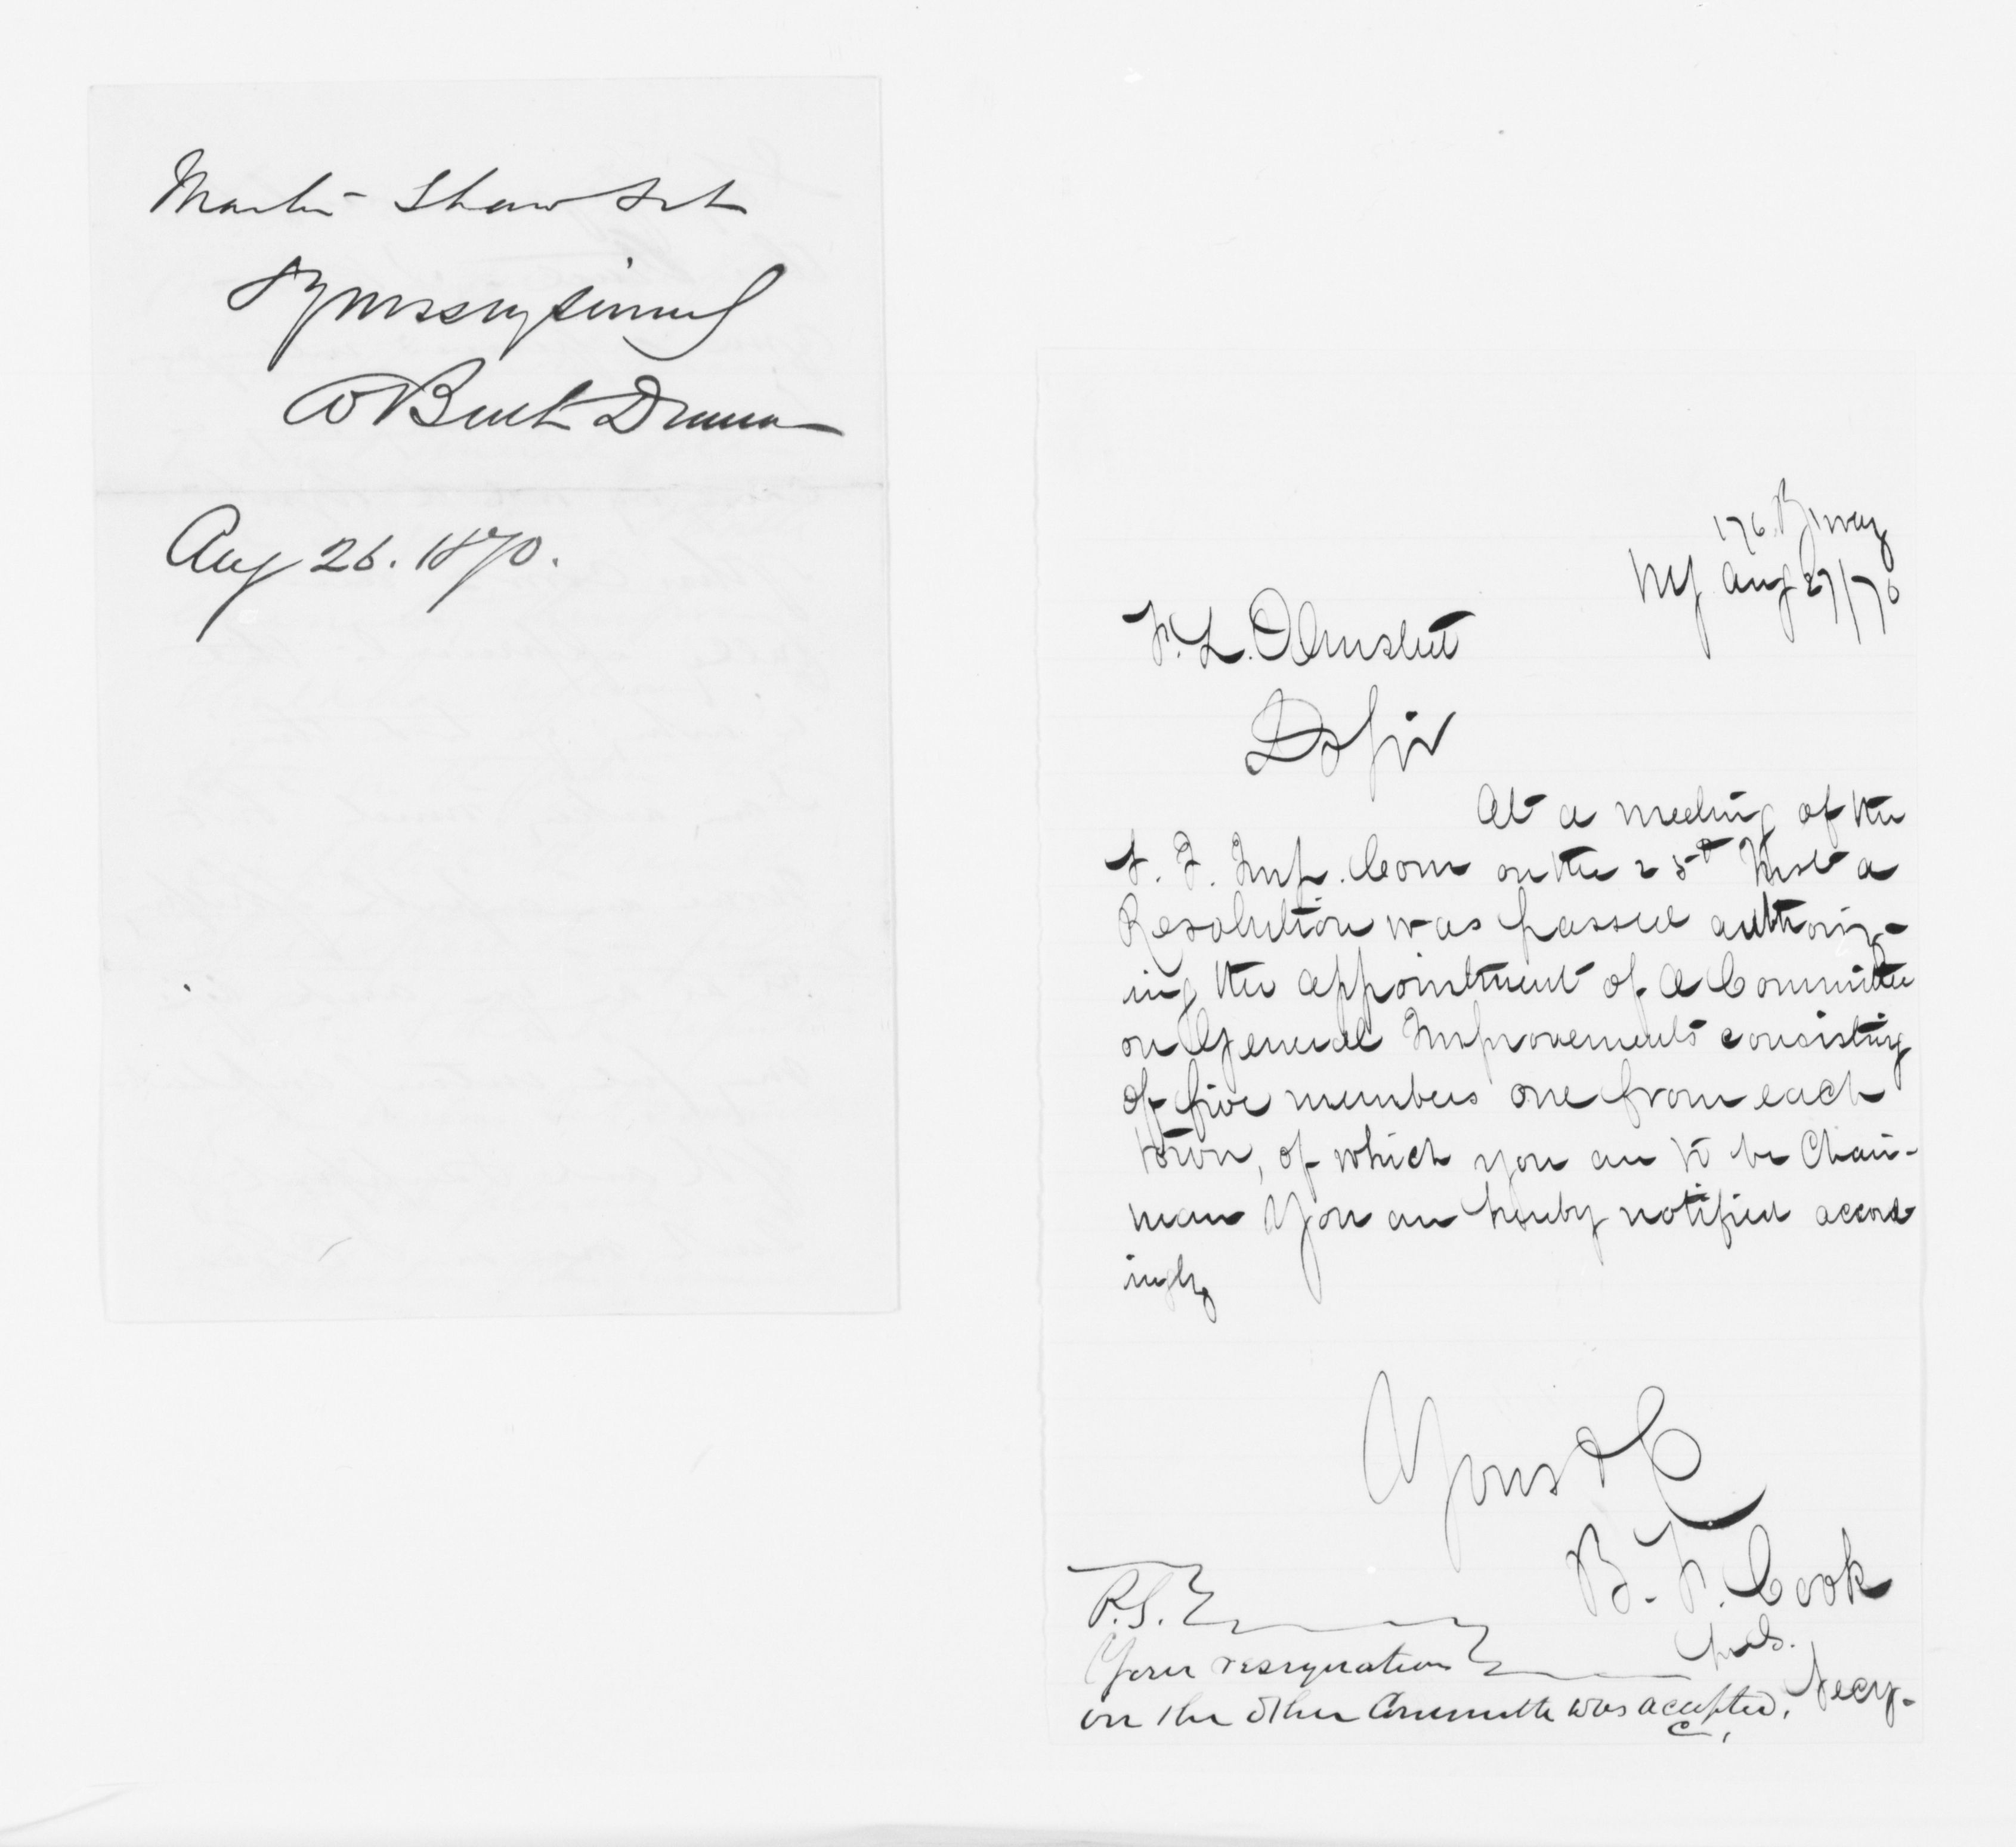 Aug 26. 1870.
176. B'way
NY Aug 27/70
F. L. Olmsted
D Sir
At a meeting of the
S. I. Imp. Com on the 25th Inst a
Resolution was passed authoriz-
ing the appointment of a Committee
on General Improvements consisting
of five members one from each
town, of which you are to be Chair-
man You are hereby notified accord
ingly
Yours &c
B. F. Cook
Secy.
P.S.
Your resignation
on the other Committee was accepted.
C.